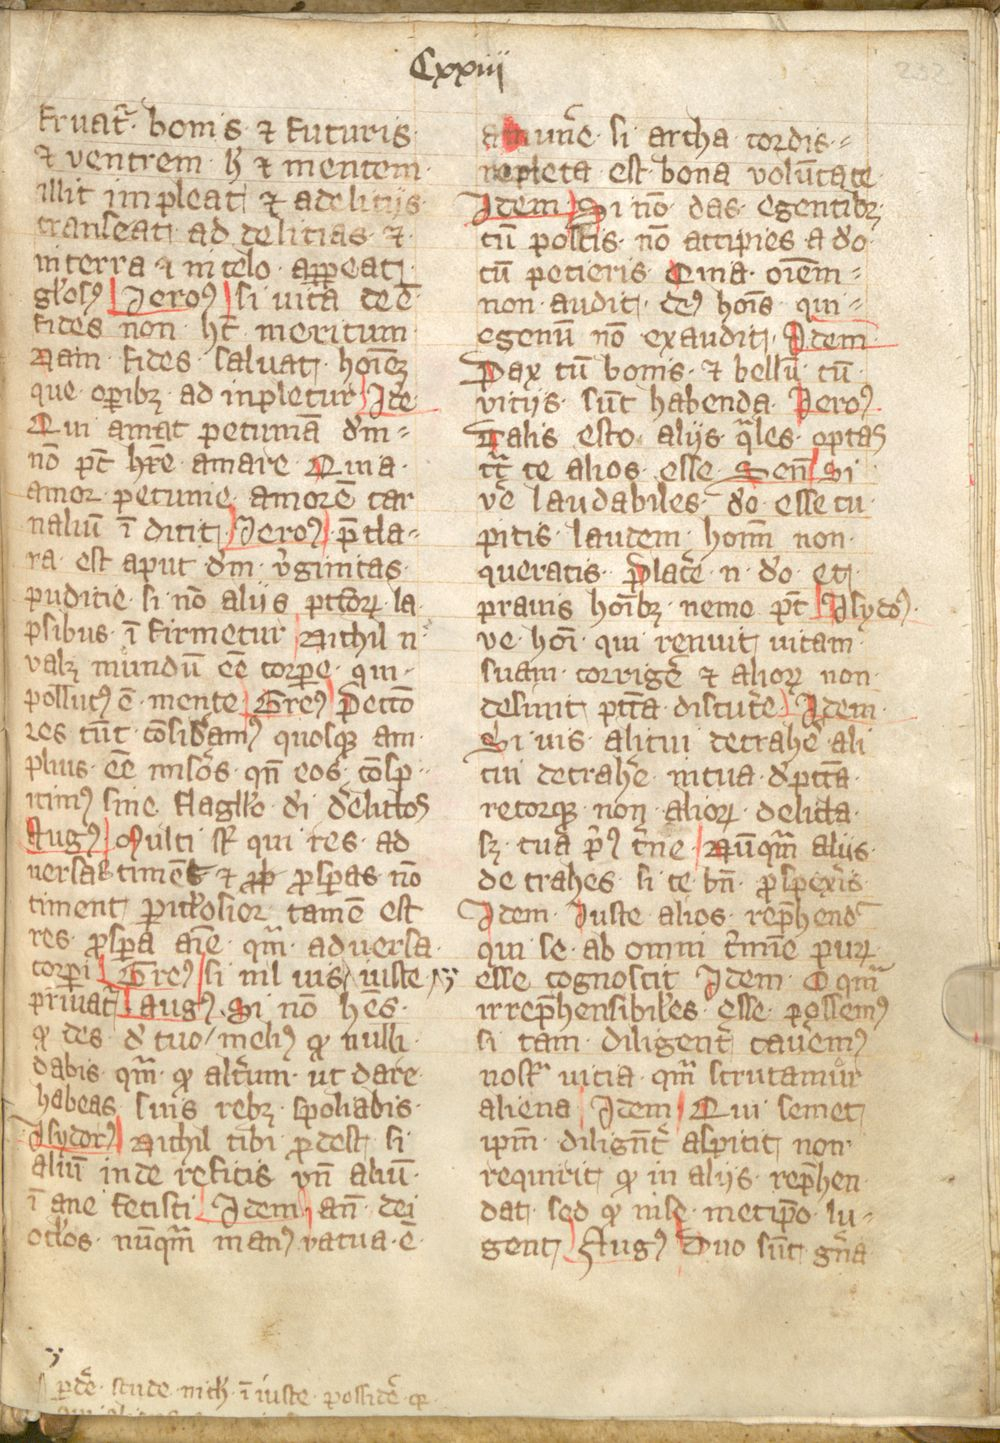 Cxxiii
232
fruat̄ᷣ bonis ⁊ futuris
⁊ ventrem hͥ ⁊ mentem
illic impleat ⁊ a deliciis
transeat ad delicias ⁊
in terra ⁊ in celo appeat
gl̄osꝰ Jeroꝰ si vita deē
fides non ht̄ meritum
Nam fides saluat hoīeꝫ
que opibꝫ adinpletur Idē
Qui amat pecuniā dm̄
nō pt̄ hr̄e amare Quia
amor pecunie amorē car
naliū ī dicit Jeroꝰ p̄cla
ra est aput dm̄ v̄ginitas
pudicie si nō aliis pctōꝝ la
psibus ī firmetur Nichil n̄
valꝫ mundū eē corpe qui
pollutꝰ ē mente Greꝰ Pecco
res tūc cōsid̄amꝰ quosqꝫ am
plius eē mis̄os qn̄ eos cōsp
icimꝰ sine flagll̄o di d̄elictos
Augꝰ Multi sͬ qui res ad
versas timēt ⁊ ꝓsꝑas nō
timent ꝑicl̄osior tamē est
res ꝓsꝑa aīe qm̄ adversa
corpi Greꝰ si nil vis iuste
priuat̄ᷣ augꝰ Si nō hēs
qͦ des d̄ tuo meliꝰ qͦ nulli
dabis qm̄ qͦ alt̄um ut dare
habeas suis rebꝫ spoliabis
Isydorꝰ Nichil tibi ꝓdest si
aliū inde reficis vn̄ aliū
ī ane fecisti Idem an̄ dei
ocl̄os nūqm̄ manꝰ vacua ē
a mun̄e si archa cordis
repleta est bona volūtate
Idem Si nō das egentibꝫ
cū possis nō accipies a do
cū pecieris Quia oīem
non audit deꝰ hoīs qui
egenū nō exaudit Idem
Pax cū bonis ⁊ bellū cū
viciis sūt habenda Jeroꝰ
Talis esto aliis q̄les optas
cᷓ te alios esse Sen̄ Si
vē laudabiles do esse cu
pitis laudem hoīm non
queratis Plac̄e n̄ do et
pravis hoībꝫ neme pt̄ Isydoꝰ
ve hoī qui renuit vitam
suam corriḡe ⁊ alioꝝ non
desinit pctā discut̄e Idem
Si vis alicui detrah̄e ali
cui detrah̄e in tua d̄ pctā
retorqꝫ non alioꝝ delicta
sꝫ tua pͥꝰ c̄ne Nūqm̄ aliis
detrahes si te bn̄ ꝓspex̄is
Idem Iuste alios rep̄hend
qui se ab omni c̄mīe puꝝ
esse cognoscit Idem O qm̄
irrep̄hensibiles esse possemꝰ
si tam diligent̄ cavemꝰ
nosͬ vicia qm̄ scrutamur
aliena Idem Qui semet
ipm̄ diligēt̄ aspicit non
requirit qͦ in aliis rep̄hen
dat sed qͦ in se metipō lu
gent Augꝰ Duo sūt gn̄a
ꝑd̄e stude nichͥ ī iuste possid̄e qꝛ